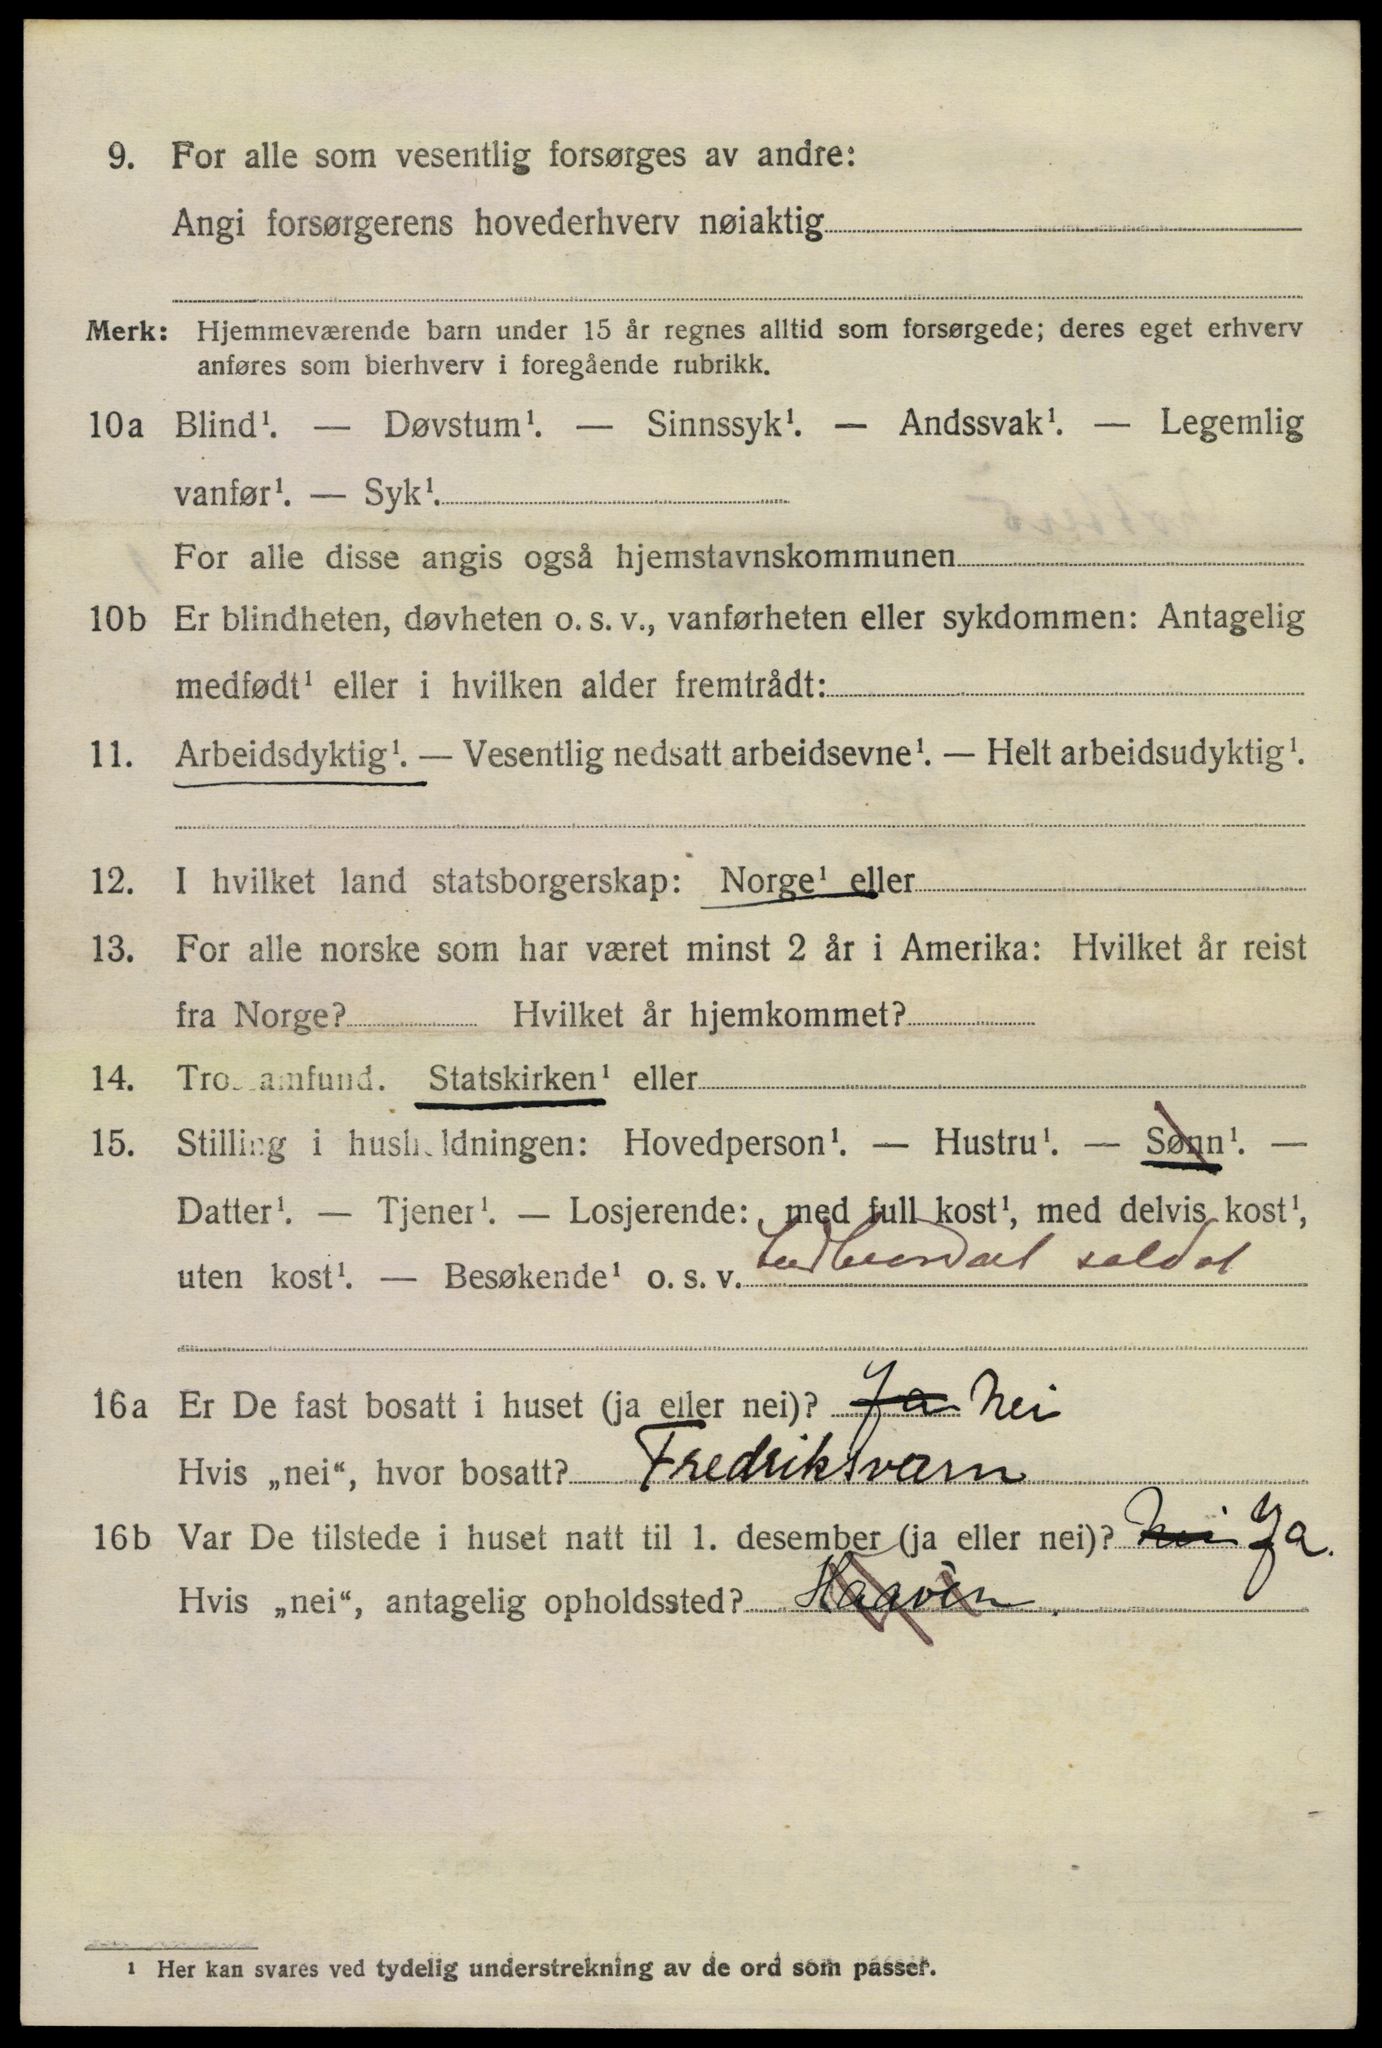 9. For alle som vesentlig forsørges av andre:
Angi forsørgerens hovederhverv nøiaktig
Merk: Hjemmeværende barn under 15 år regnes alltid som forsørgede; deres eget erhverv
anføres som bierhverv i foregående rubrikk.
10a Blind¹. — Døvstum¹. — Sinnssyk¹. — Andssvak¹. — Legemlig
vanfør¹. — Syk¹.
For alle disse angis også hjemstavnskommunen
10b Er blindheten, døvheten o. s. v., vanførheten eller sykdommen: Antagelig
medfødt¹ eller i hvilken alder fremtrådt:
11. Arbeidsdyktig¹. — Vesentlig nedsatt arbeidsevne¹. — Helt arbeidsudyktig¹.
12. I hvilket land statsborgerskap: Norge¹ eller
13. For alle norske som har været minst 2 år i Amerika: Hvilket år reist
fra Norge? Hvilket år hjemkommet?
14. Trossamfund. Statskirken¹ eller
15. Stilling i husholdningen: Hovedperson¹. — Hustru¹. — Sønn¹. —
Datter¹. — Tjener¹. — Losjerende: med full kost¹, med delvis kost¹,
uten kost¹. — Besøkende¹ o. s. v. soldat
16a Er De fast bosatt i huset (ja eller nei)? Ja Nei
Hvis „nei“, hvor bosatt? Fredriksværn
16b Var De tilstede i huset natt til 1. desember (ja eller nei)? Nei Ja.
Hvis „nei“, antagelig opholdssted? Haaven.
¹ Her kan svares ved tydelig understrekning av de ord som passer.